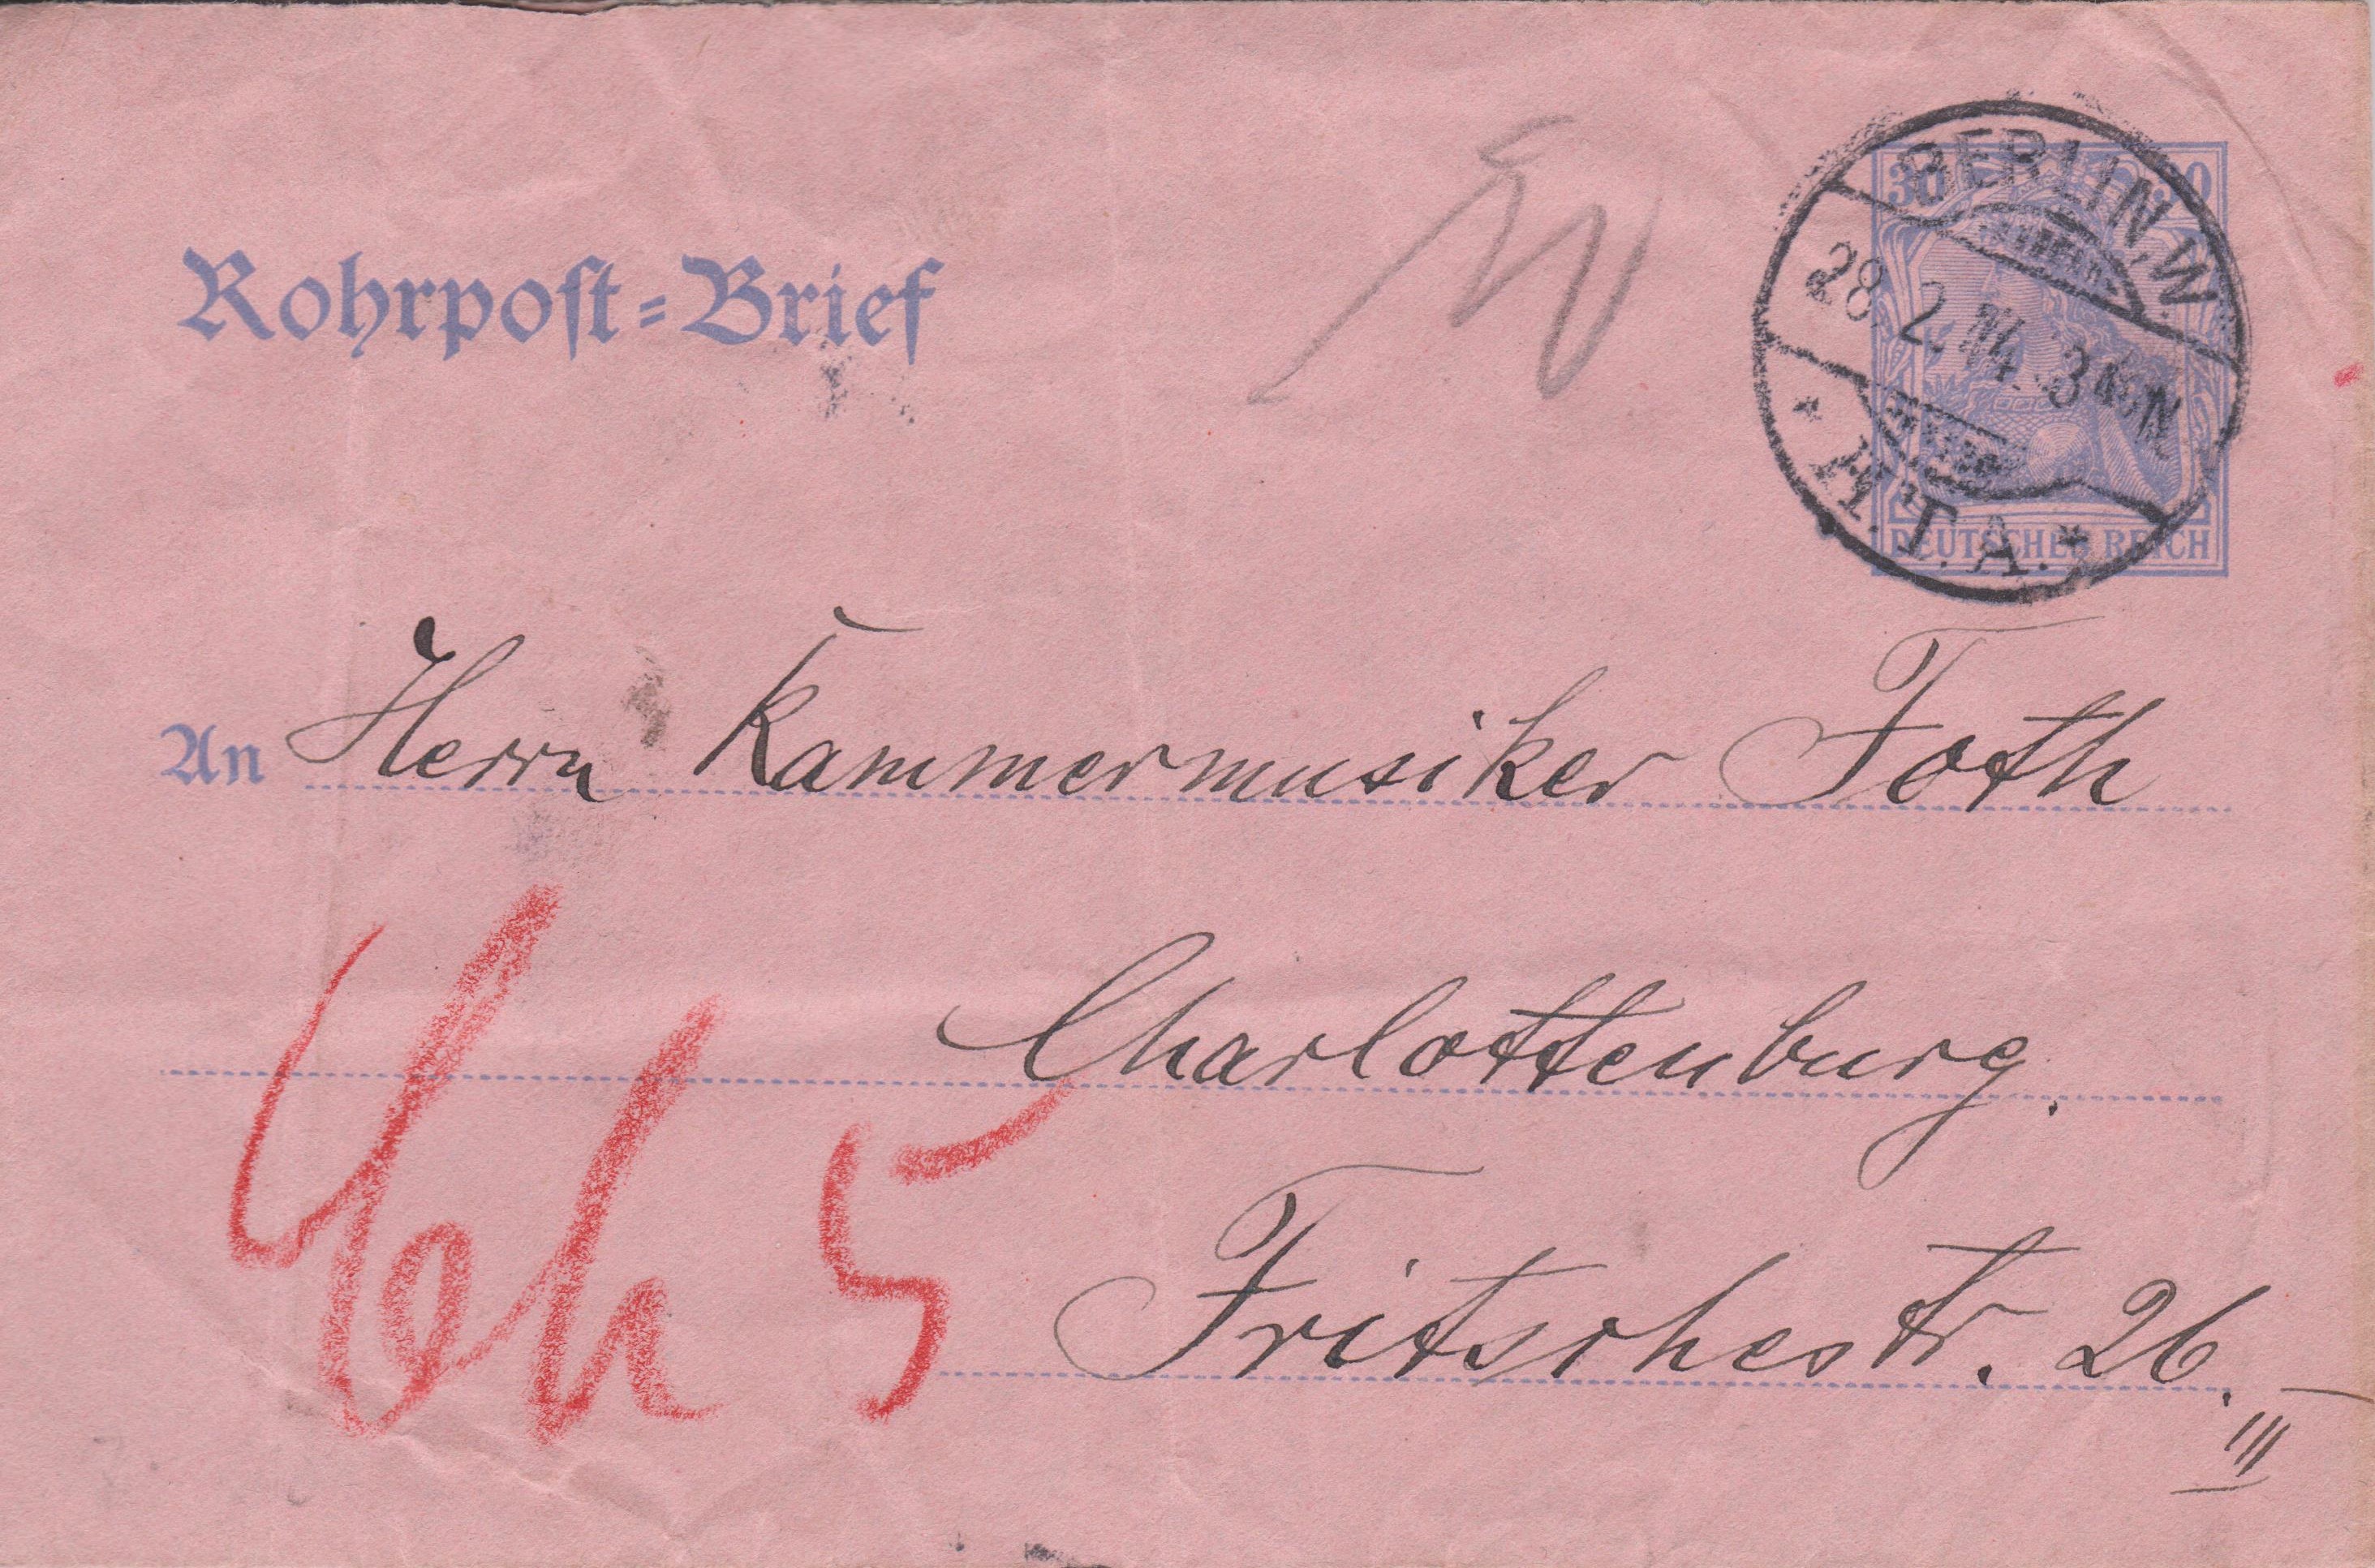 Rohrpost-Brief
30 30
BERLIN, W.
28. 2. 04. 3
* H. T. A. *
DEUTSCHES REICH
An Herrn Kammermusiker Foth
Charlottenburg.
5
Fritschestr. 26.
III